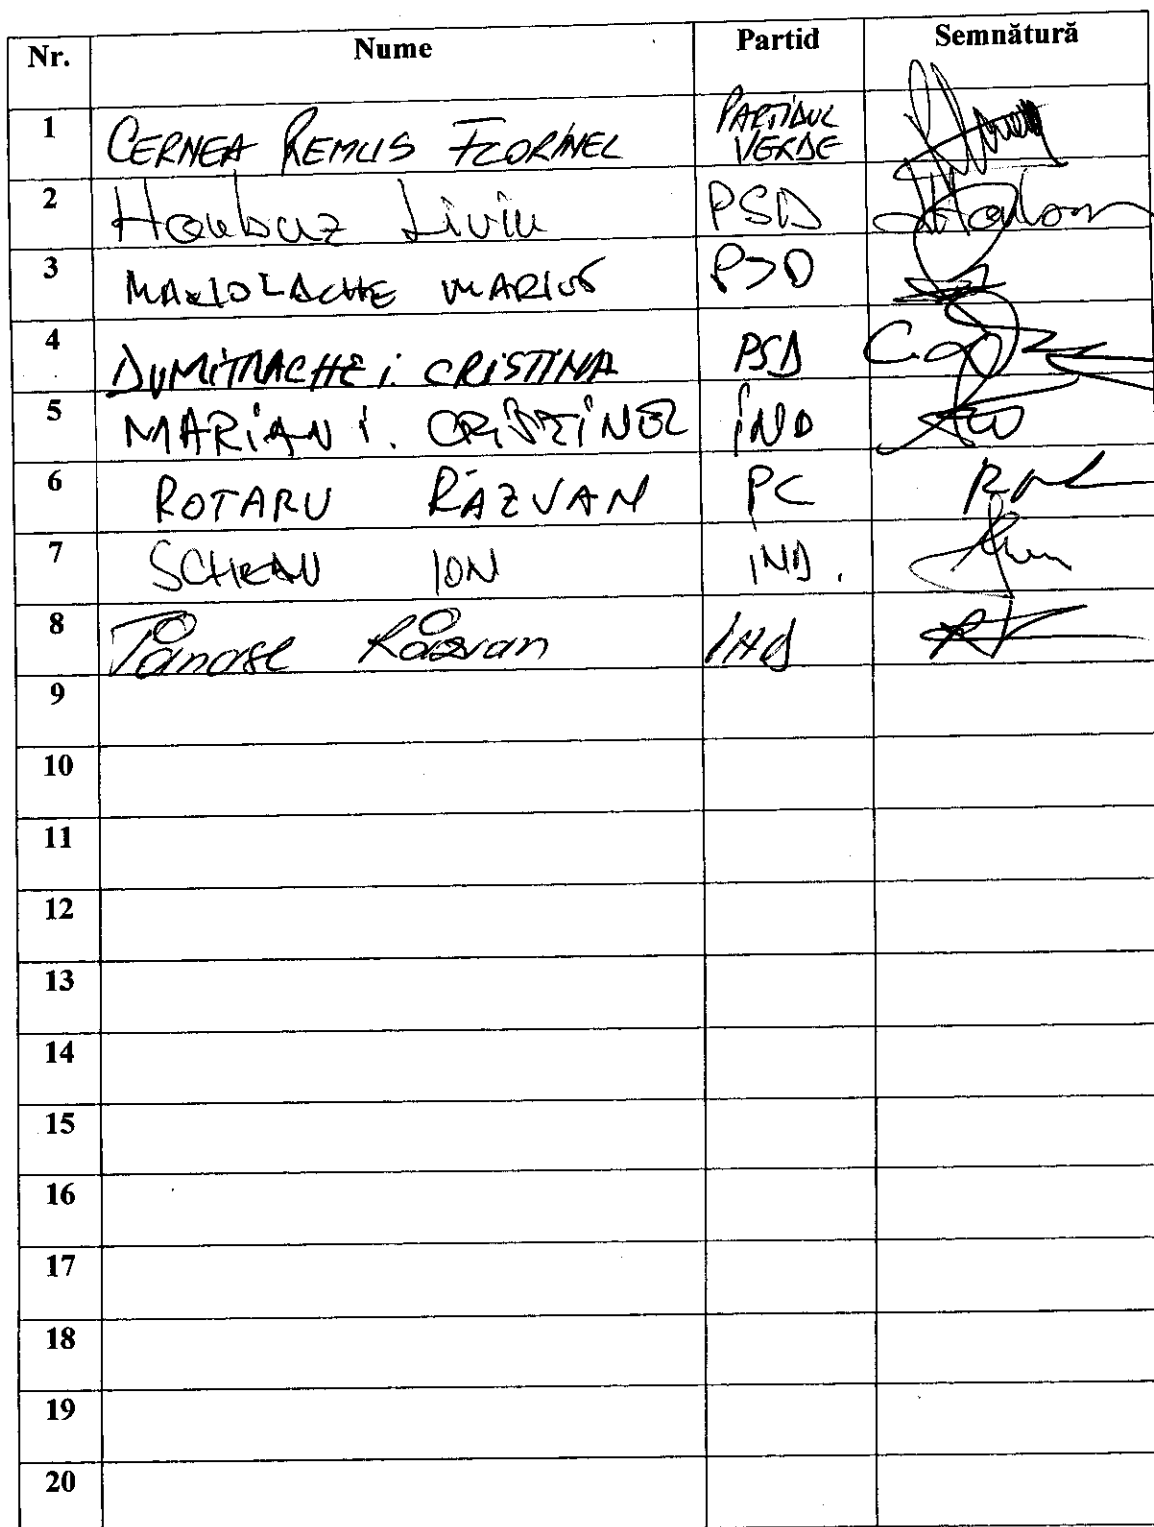 Nr. Nume Partid Semnătură
1 CERNEA REMUS FLORINEL PARTIDUL VERDE
2 Harbuz Liviu PSD
3 MANOLACHE MARIUS PSD
4 DUMITRACHE i. CRISTINA PSD
5 MARIAN i. CRISTINEL iND
6 ROTARU RĂZVAN PC
7 SCHEAU ION IND.
8 Tănase Răzvan IND
9
10
11
12
13
14
15
16
17
18
19
20